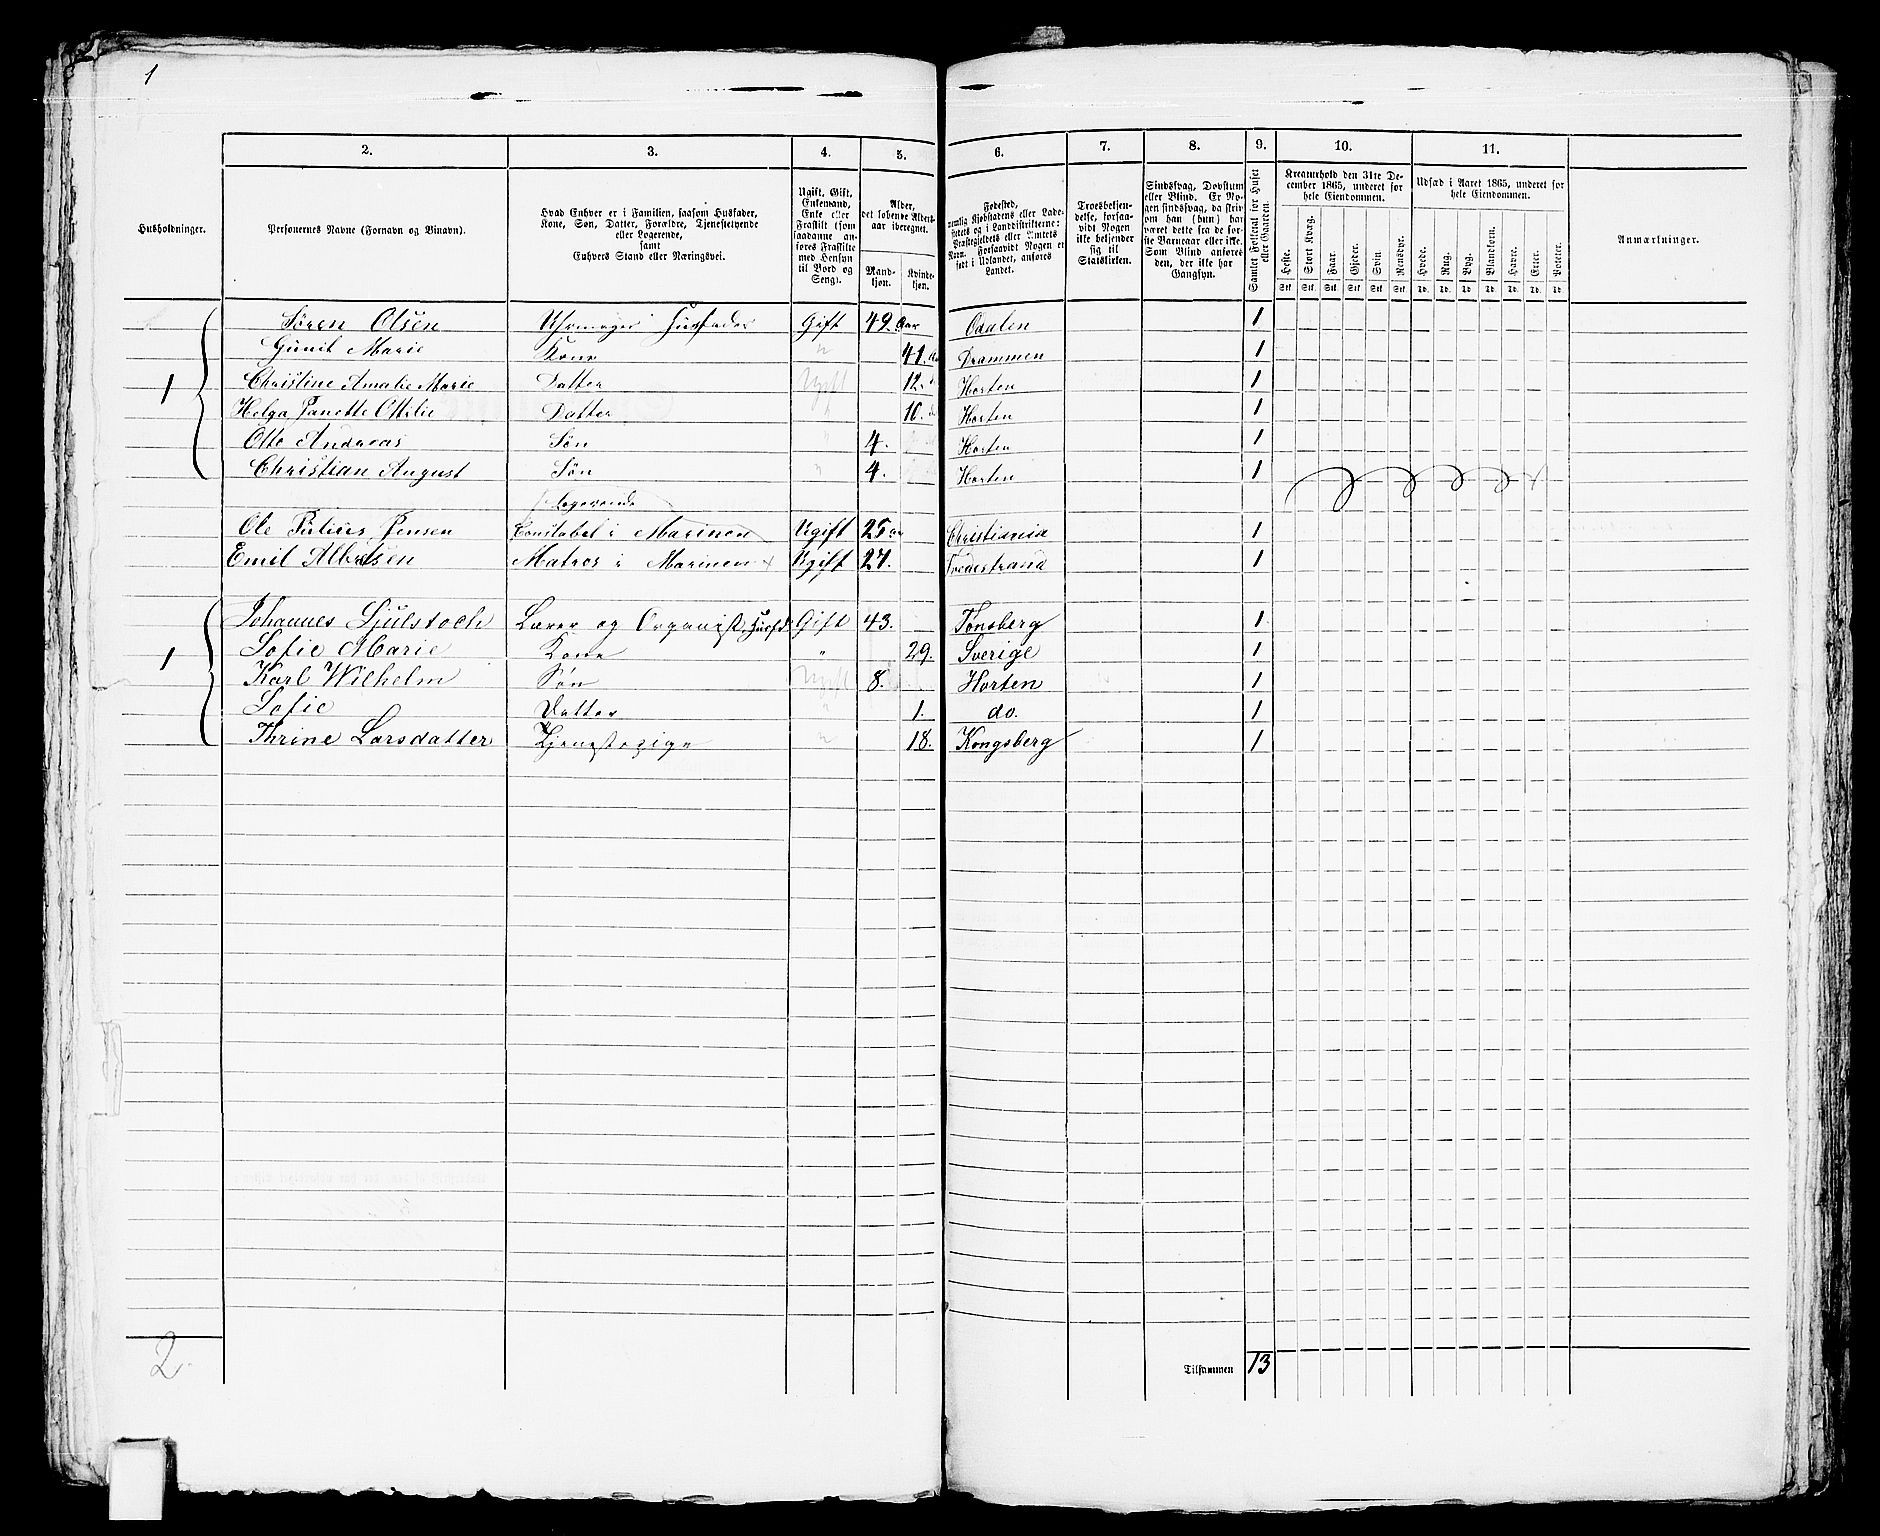 1
2. 3. 4. 5. 6. 7. 8. 9. 10. 11.
Husholdninger.
Personernes Navne (Fornavn og Binavn).
Hvad Enhver er i Familien, saasom Husfader,
Kone, Søn, Datter, Forældre, Tjenestetyende
eller Logerende,
samt
Enhvers Stand eller Næringsvei.
Ugift, Gift,
Enkemand,
Enke eller
Fraskilt (som
saadanne an-
føres Fraskilte
med Hensyn
til Bord og
Seng).
Alder,
det løbende Alders-
aar iberegnet.
Mand-
kjøn.
Kvinde-
kjøn.
Fødested,
nemlig Kjøbstadens eller Lade-
stedets og i Landdistrikterne:
Præstegjeldets eller Amtets
Navn. Forsaavidt Nogen er
født i Udlandet, anføres
Landet.
Troesbekjen-
delse, forsaa-
vidt Nogen
ikke bekjender
sig til
Statskirken.
Sindssvag, Døvstum
eller Blind. Er No-
gen sindssvag, da skriv
om han (hun) har
været dette fra de før-
ste Barneaar eller ikke.
Som Blind anføres
den, der ikke har
Gangsyn.
Samlet Folketal for Huset
eller Gaarden.
Kreaturhold den 31te De-
cember 1865, underet for
hele Eiendommen.
Heste. Stort Kvæg. Faar. Gjeder. Svin. Rensdyr.
Stk. Stk. Stk. Stk. Stk. Stk.
Udsæd i Aaret 1865, underet for
hele Eiendommen.
Hvede. Rug. Byg. Blandkorn. Havre. Erter. Poteter.
Td. Td. Td. Td. Td. Td. Td.
Anmærkninger.
Søren Olsen Uhrmager Husfader Gift 49. Aar Odalen 1
Gunil Marie Kone " 41. Drammen 1
1 Christine Amalie Marie Datter Ugift 12. Horten 1
Helga Janette Ottilie Datter " 10. Horten 1
Otto Andreas Søn " 4. Horten 1
Christian August Søn " 4. Horten 1
Logerende
Ole Julius Jensen Constabel i Marinen Ugift 25 Christiania 1
Emil Albertsen Matros i Marinen Ugift 27. Tvedestrand 1
Johannes Sjulstoch Lærer og Organist, Husfd Gift 43. Tønsberg 1
1 Sofie Marie Kone " 29. Sverige 1
Karl Wilhelm Søn Ugift 8. Horten 1
Sofie Datter " 1. do. 1
Thrine Larsdatter Tjenestepige " 18. Kongsberg 1
2.
Tilsammen 13